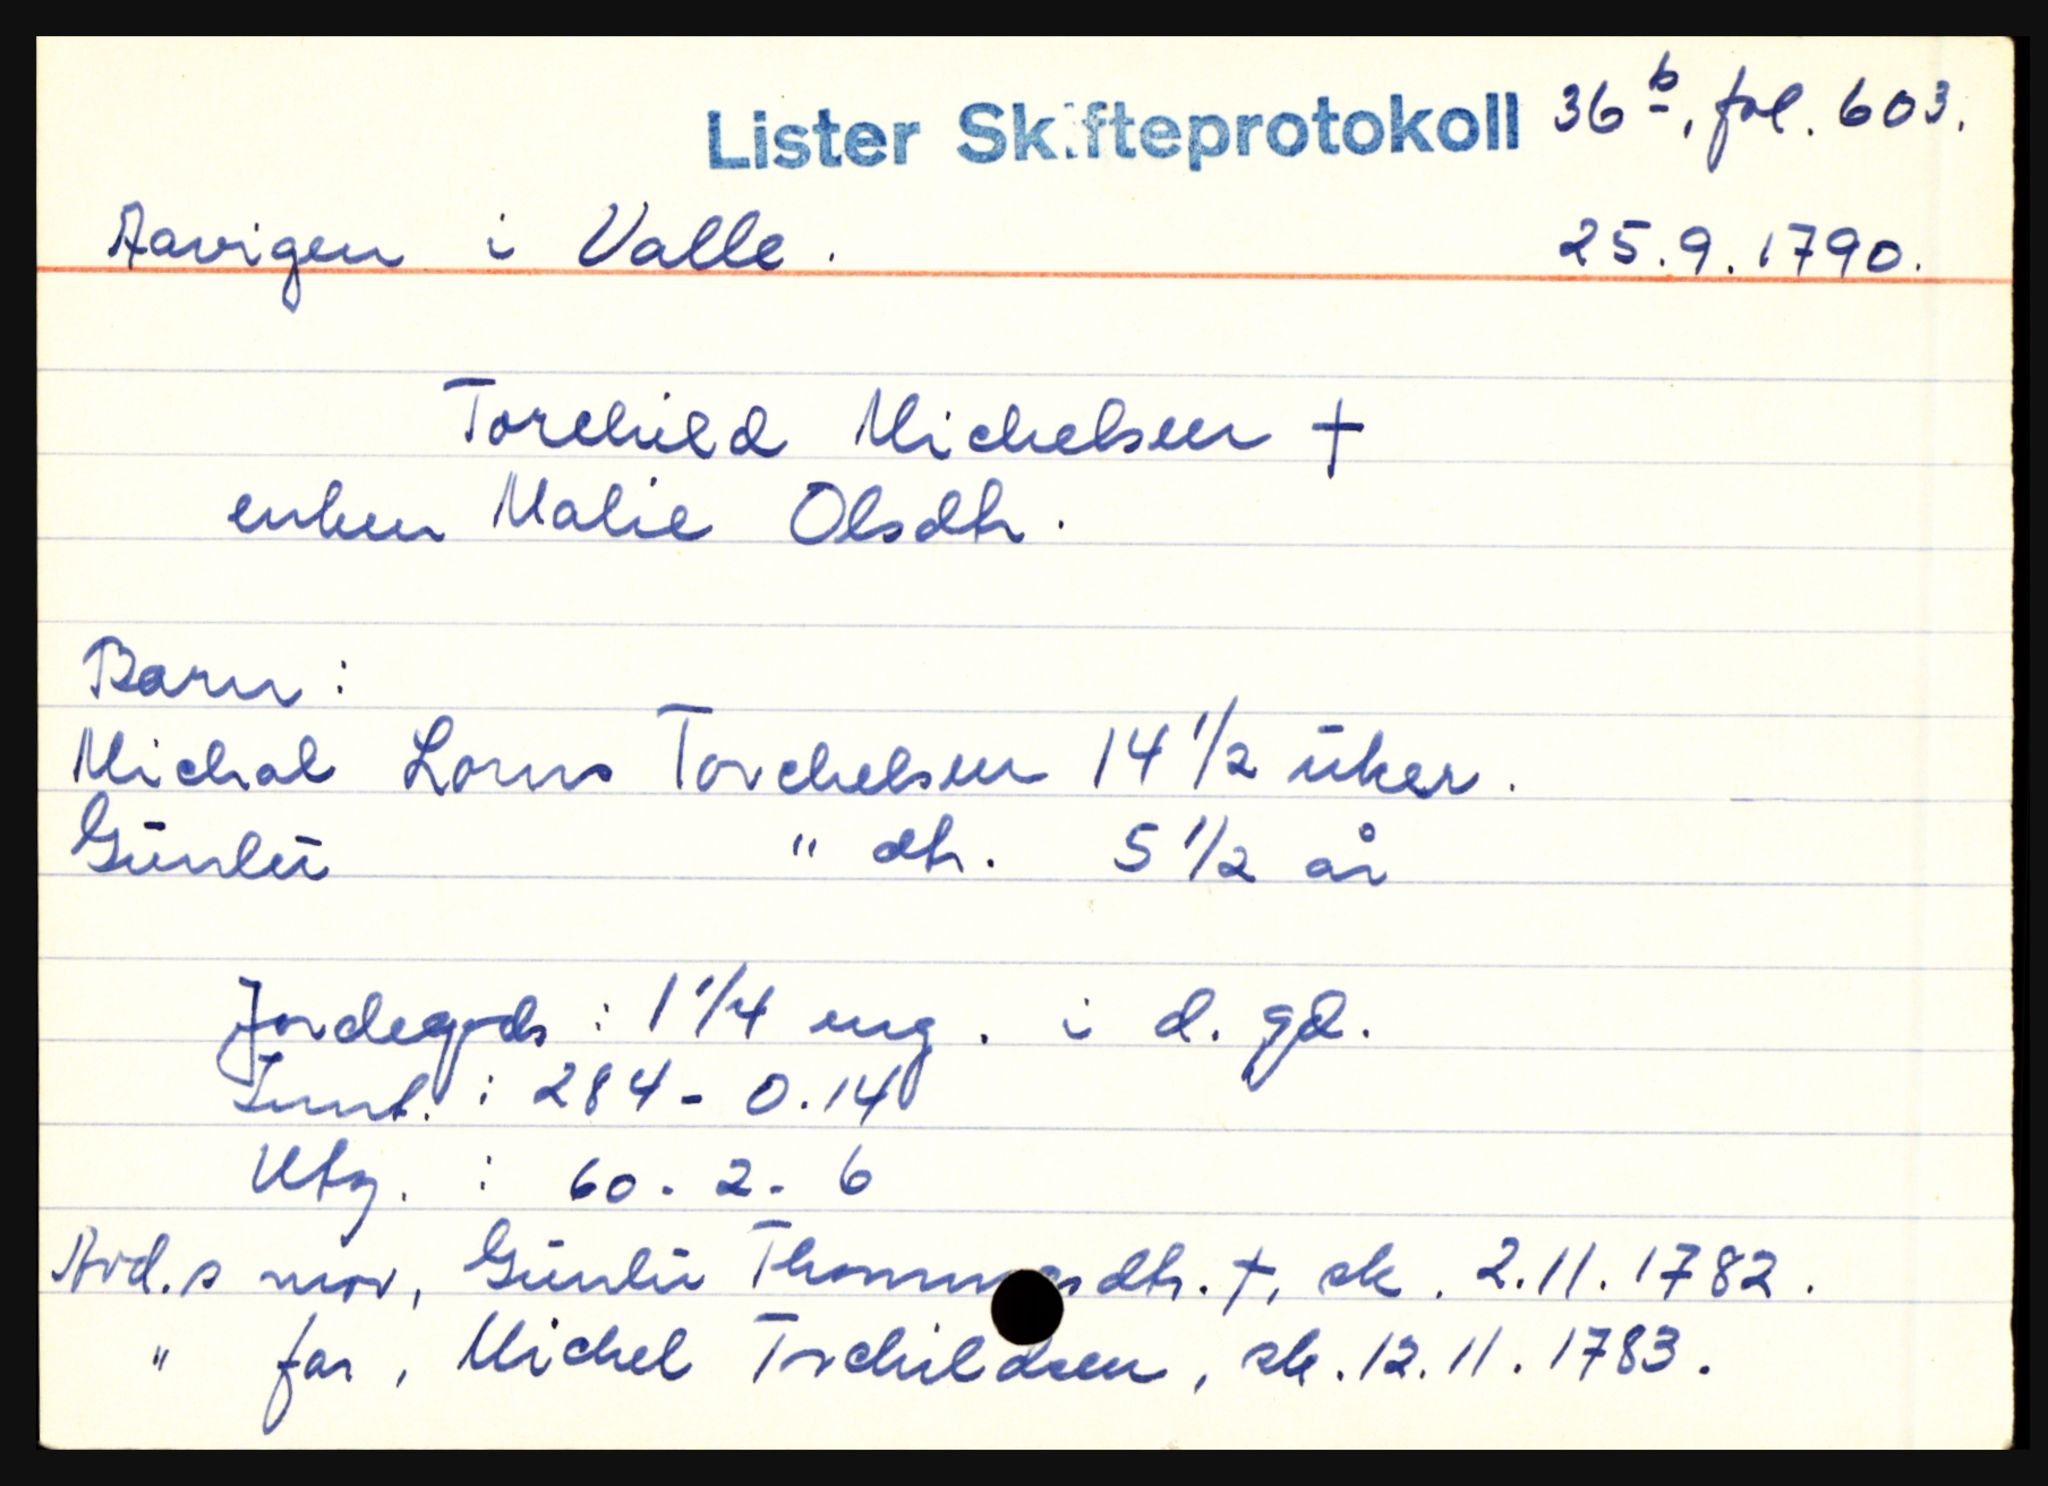 Lister Skifteprotokoll 36 b, fol. 603.
Aavigen i Valle. 25.9.1790.
Torchild Michelsen †
enken Malie Olsdtr.
Barn:
Michal Lorns Torchelsen 14 1/2 ūker.
Gūnlū " dtr. 5 1/2 år
Jordegods: 1 1/4 eng. i d. gd.
Innt.: 284 - 0.14
Utg.: 60. 2. 6
Avd.s mor, Gūnlū Thommasdtr. †, sk. 2.11.1782.
" far, Michel Torchildsen, sk. 12.11.1783.